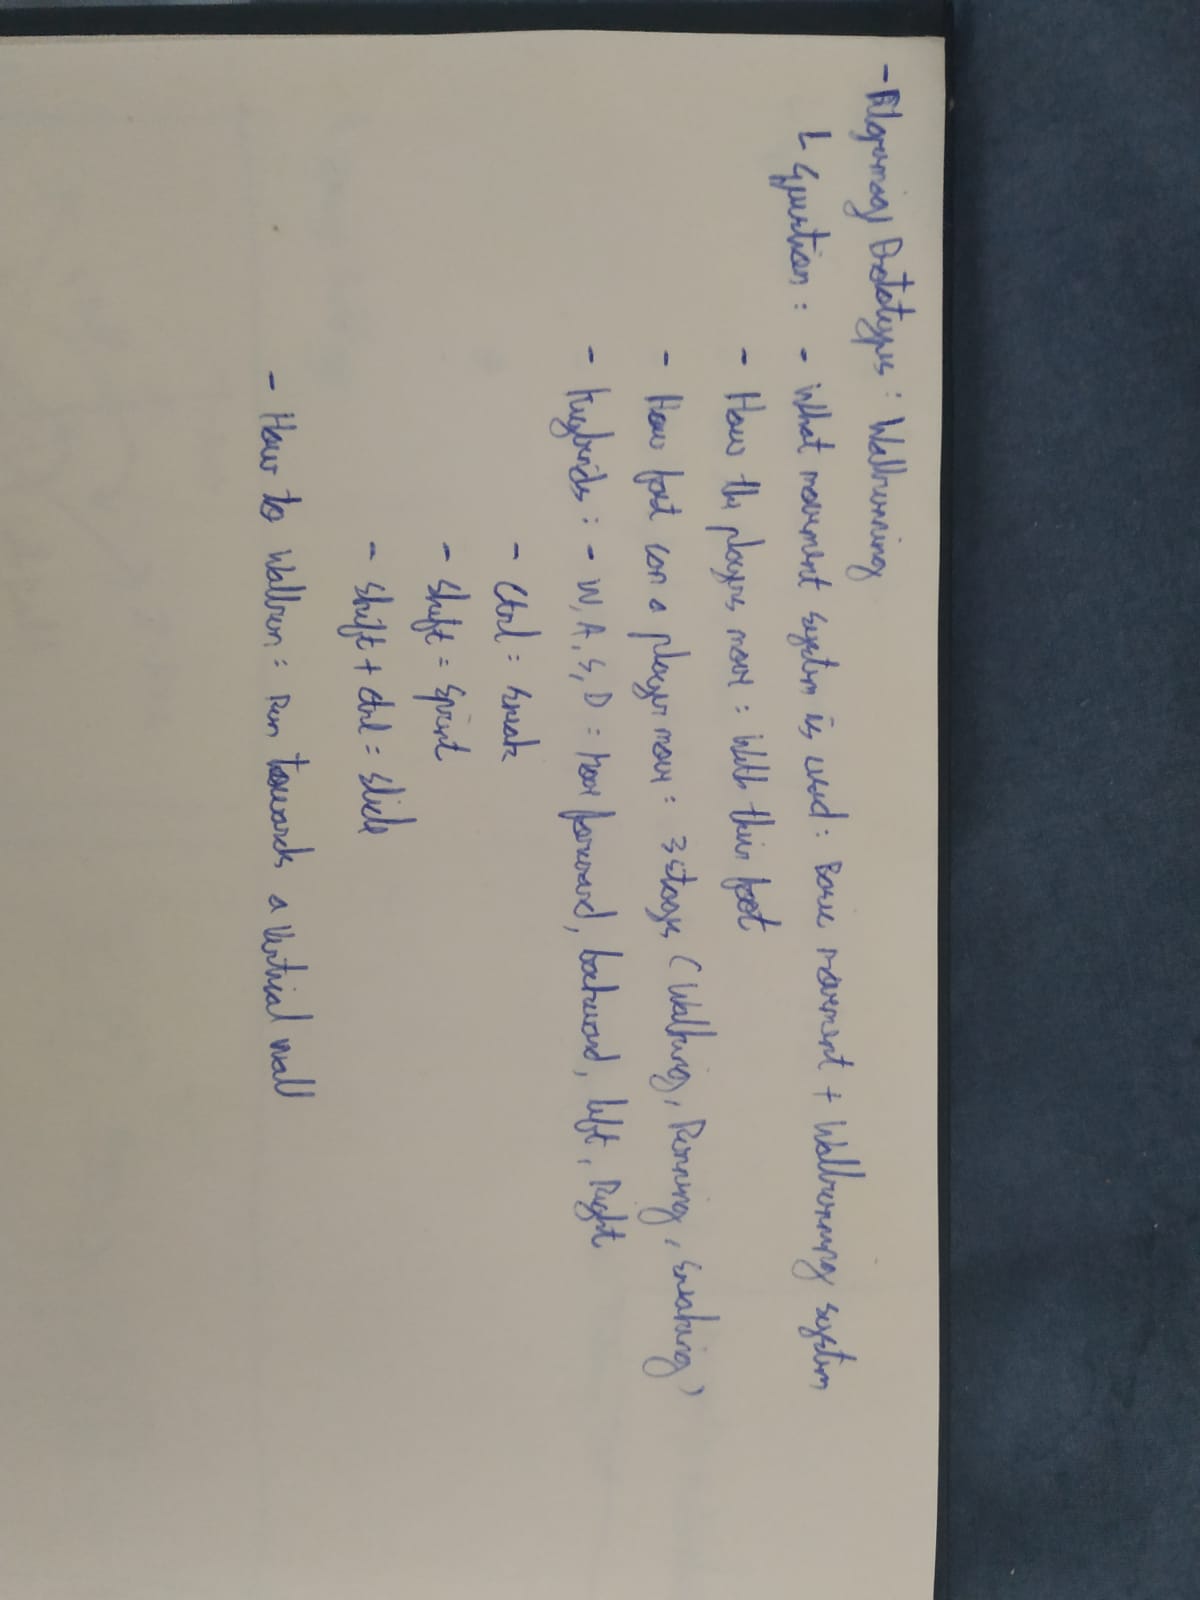 - Prototype : Wallrunning
↳ Question : - What movement system is used : Basic movement + Wallrunning system
- How the players move : With their feet
- How fast can a player move : 3 stages (Walking, Running, Sneaking)
- Keybinds : - W, A, S, D = Move forward, backward, left, Right
- Ctrl = Sneak
- Shift = Sprint
- Shift + Ctrl = Slide
- How to Wallrun : Run towards a Vertical wall